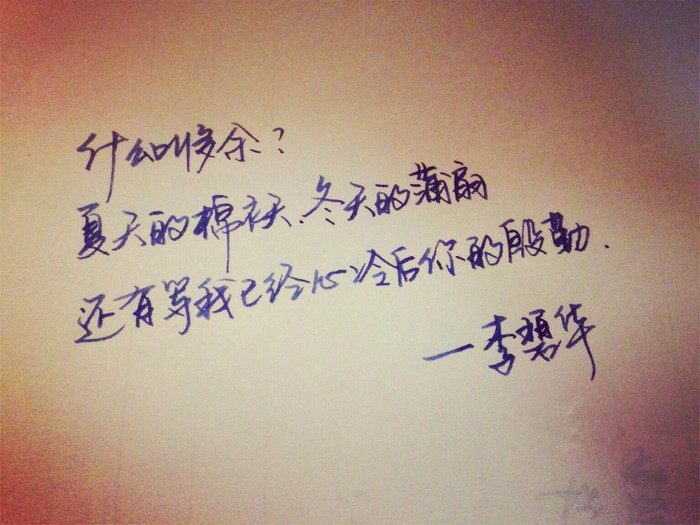 什么叫多余?
夏天的棉衣、冬天的蒲扇
还有等我已经心冷后你的殷勤.
—李碧华